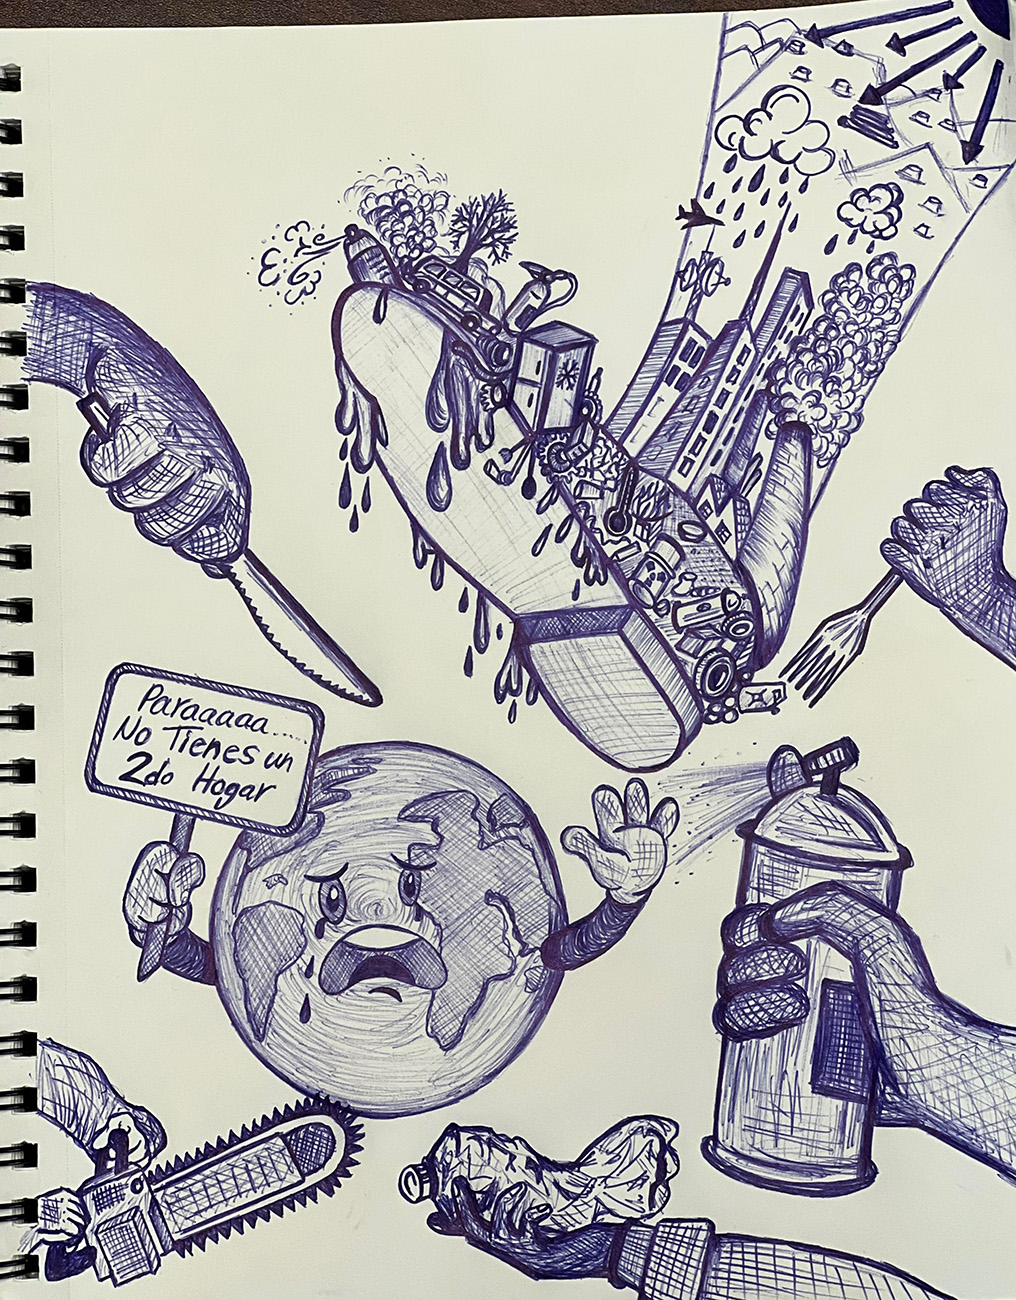 Paraaaaa.....
No Tienes un
2do Hogar